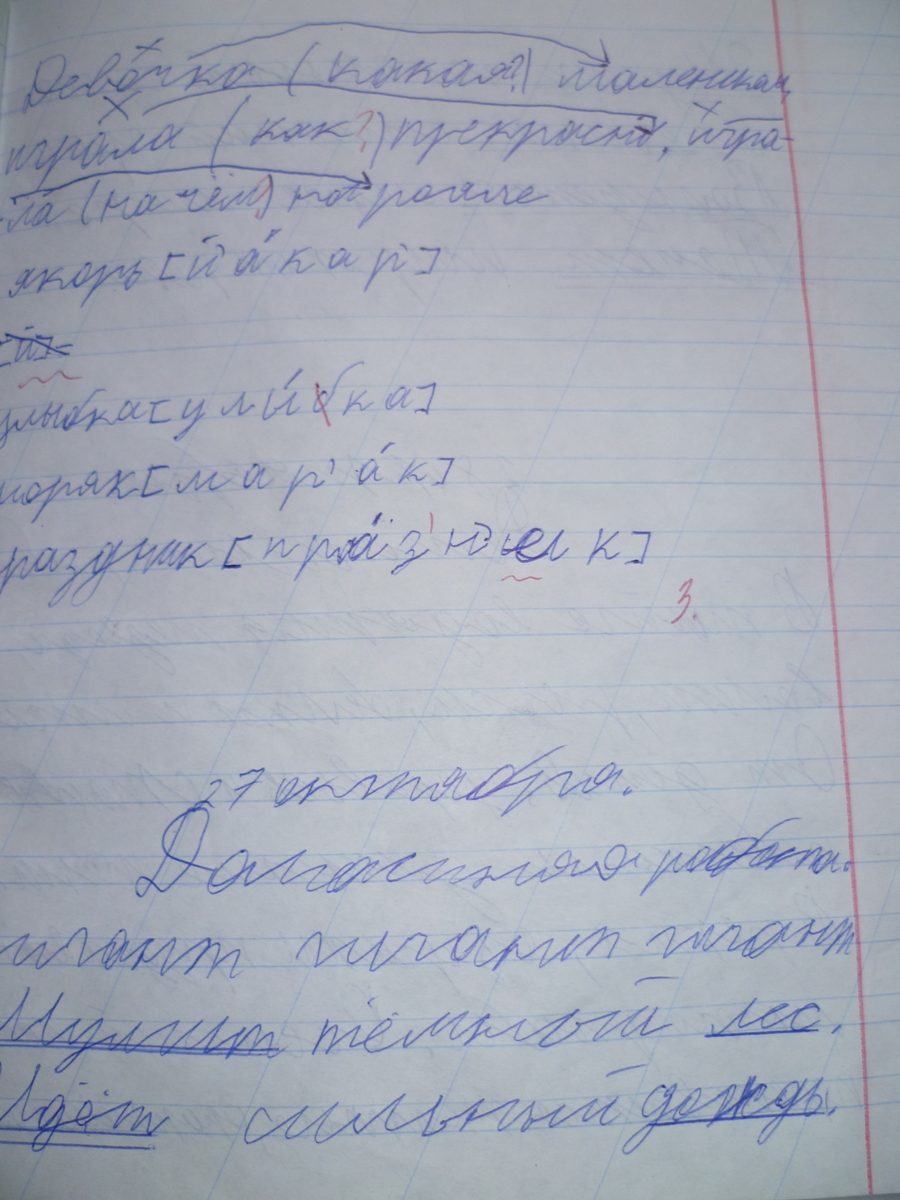 Девочка (какая?) маленькая,
играла (как?) прекрасно, игра-
ла (на чём?) на рояле
якорь [й' а́ к а р']
[й']
улыбка [у л ы́ б к а]
моряк [м а р' а́ к]
раздник [п р а́ з' н' и к]
3.
27 октября.
Домашняя работа.
игант гигант гигант
Шумит тёмный лес.
Идёт сильный дождь.